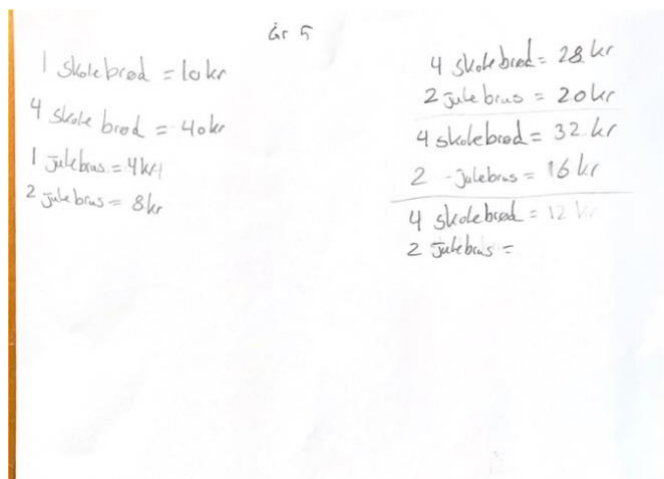 Gr 5
1 skolebrød = 10kr
4 skolebrød = 40kr
1 julebrus = 4kr
2 julebrus = 8kr
4 skolebrød = 28 kr
2 julebrus = 20kr
4 skolebrød = 32 kr
2 - julebrus = 16 kr
4 skolebrød = 12 kr
2 julebrus =